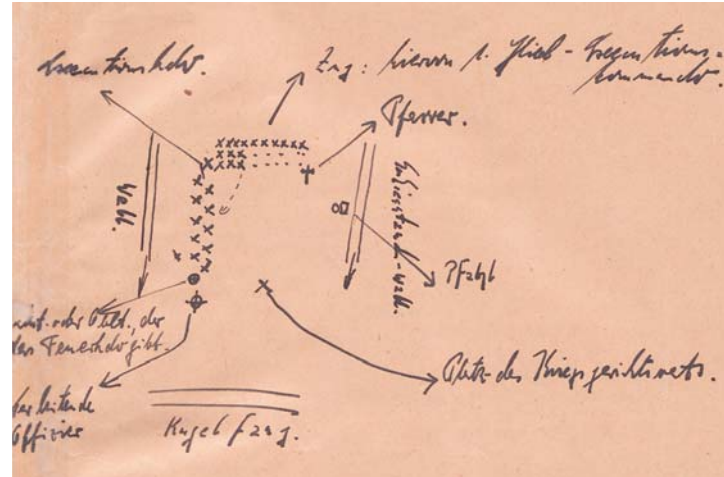 Executionskdo.
Zug: hiervon 1. Glied - Executions-
kommando.
Pfarrer.
Wall.
Wall.
Pfahl
Lt. oder Oblt., der
das Feuerkdo gibt.
Platz des Kriegsgerichtsrats.
der leitende
Offizier
Kugelfang.